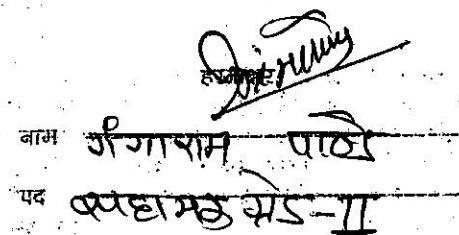 हस्ताक्षर
नाम गंगाराम पाठे
पद सहायक ग्रेड-II